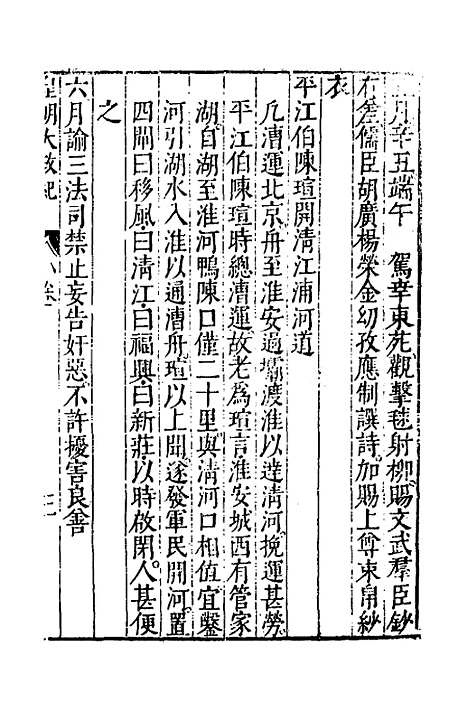 月辛五端午　駕幸東苑觀擊毬射柳賜文武羣臣鈔
有差儒臣胡廣楊榮金幼孜應制譔詩加賜上尊束帛紗
衣
平江伯陳瑄開清江浦河道
凡漕運北京舟至淮安過壩渡淮以達清河挽運甚勞
平江伯陳瑄時總漕運故老為瑄言淮安城西有管家
湖自湖至淮河鴨陳口僅二十里與清河口相值宜鑿
河引湖水入淮以通漕舟瑄以上聞遂發軍民開河置
四閘曰移風曰清江曰福興曰新莊以時啟閉人甚便
之
六月諭三法司禁止妄告奸惡不許擾害良善
皇明大政紀　卷